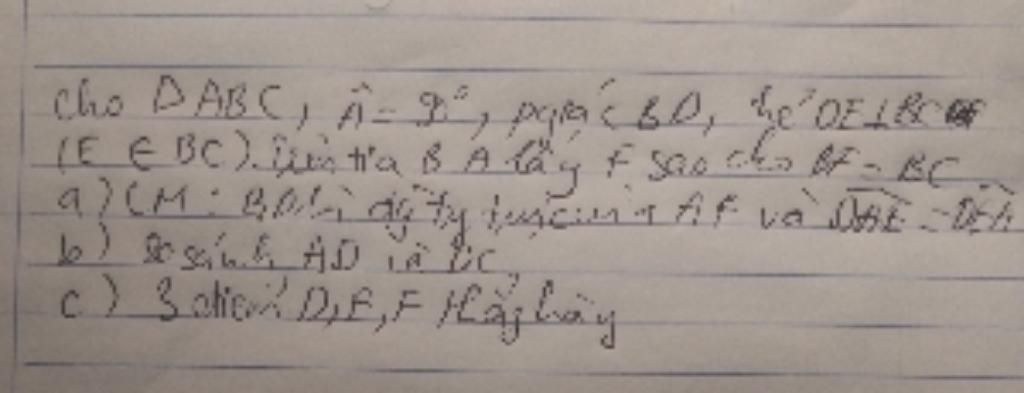 Cho ΔABC, Â = 90°, pgiác BD, kẻ DE⊥BC
(E ∈ BC). trên tia BA lấy F sao cho BF = BC
a) CM: BD là đg tg trực của AE và DAE = DEA
b) so sánh AD và DC
c) 3 điểm D, E, F thẳg hàg